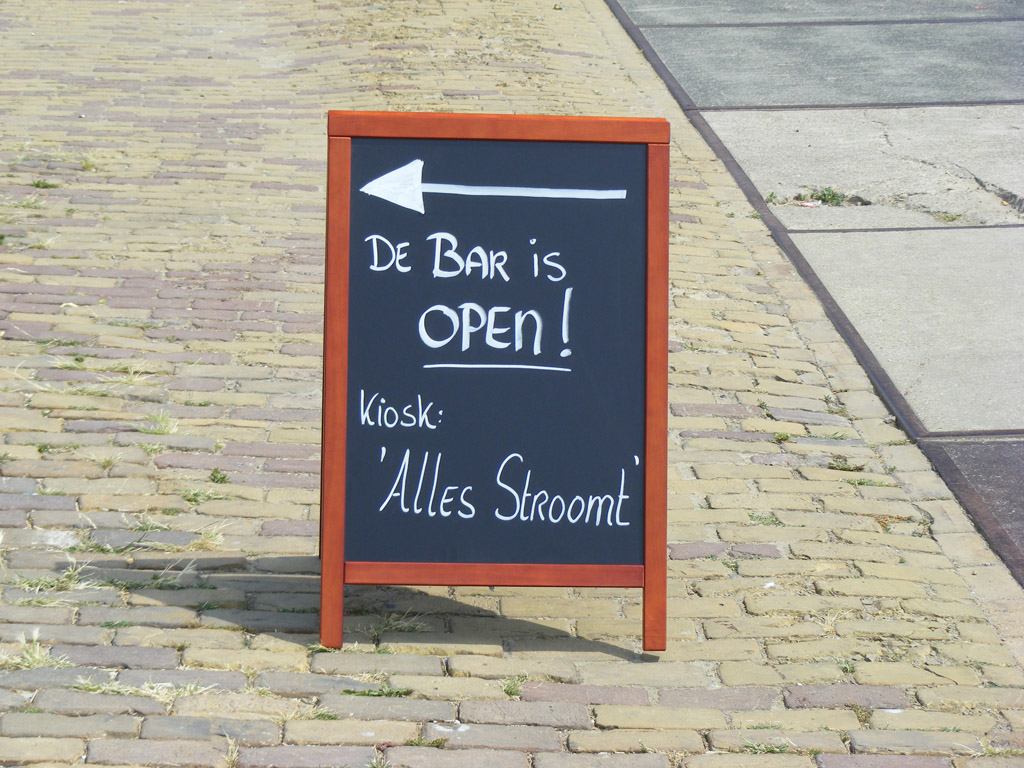 De Bar is
OPEN!
Kiosk:
'Alles Stroomt'